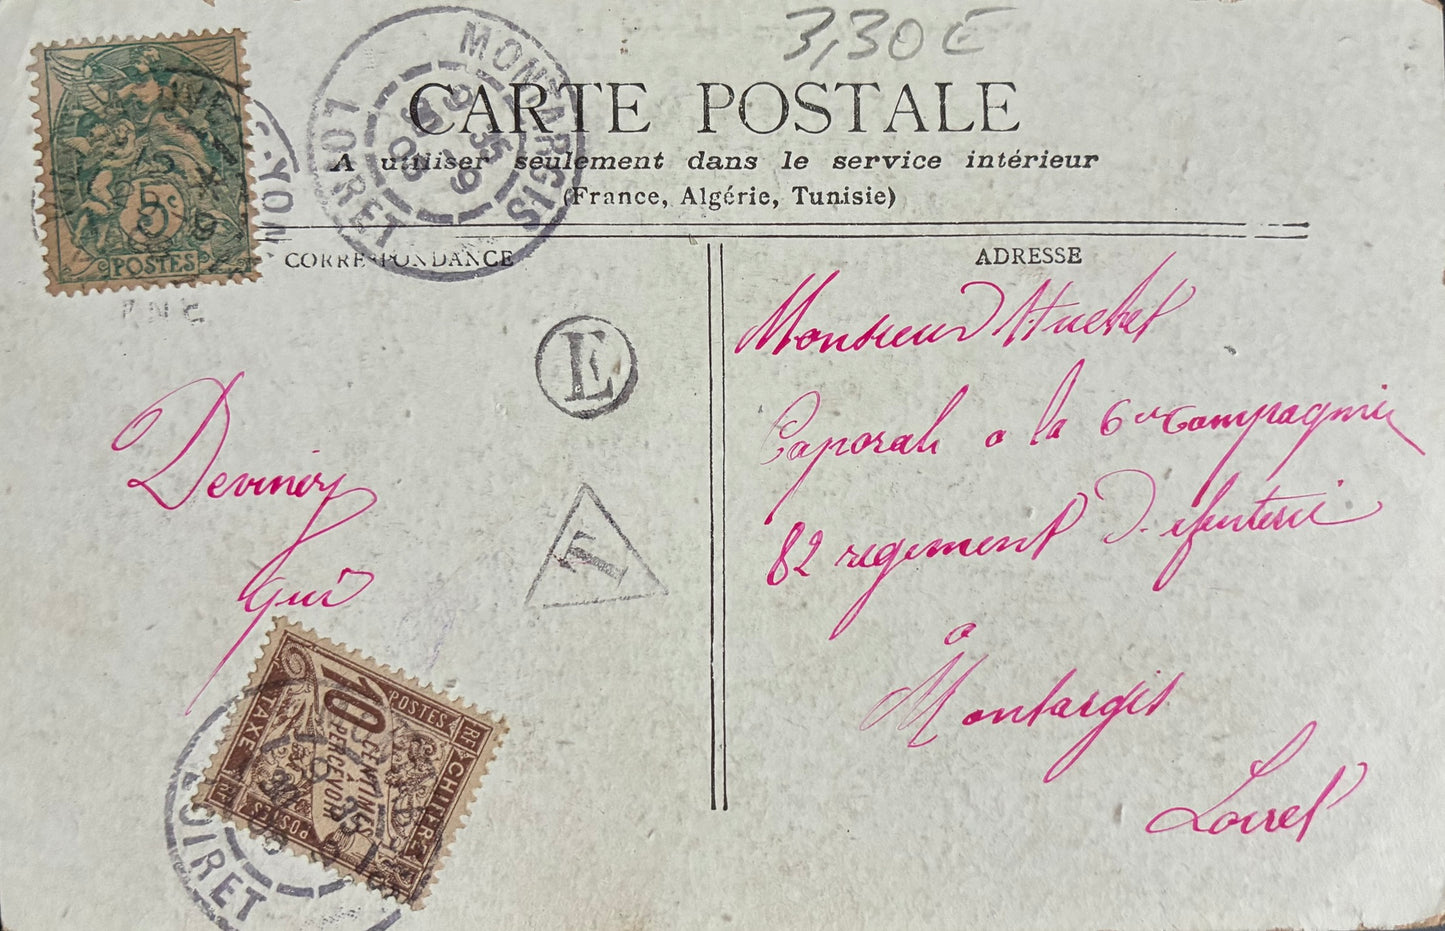 3,30 €
CARTE POSTALE
A utiliser seulement dans le service intérieur
(France, Algérie, Tunisie)
CORRESPONDANCE
ADRESSE
MONTARGIS
LOIRET
5c
POSTES
E
T
Devinez
qui
Monsieur Huchet
Caporal a la 6e Compagnie
82 regiment D'infenterie
a
Montargis
Loiret
10
CENTIMES
A
PERCEVOIR
POSTES
TAXE
POSTES
LOIRET